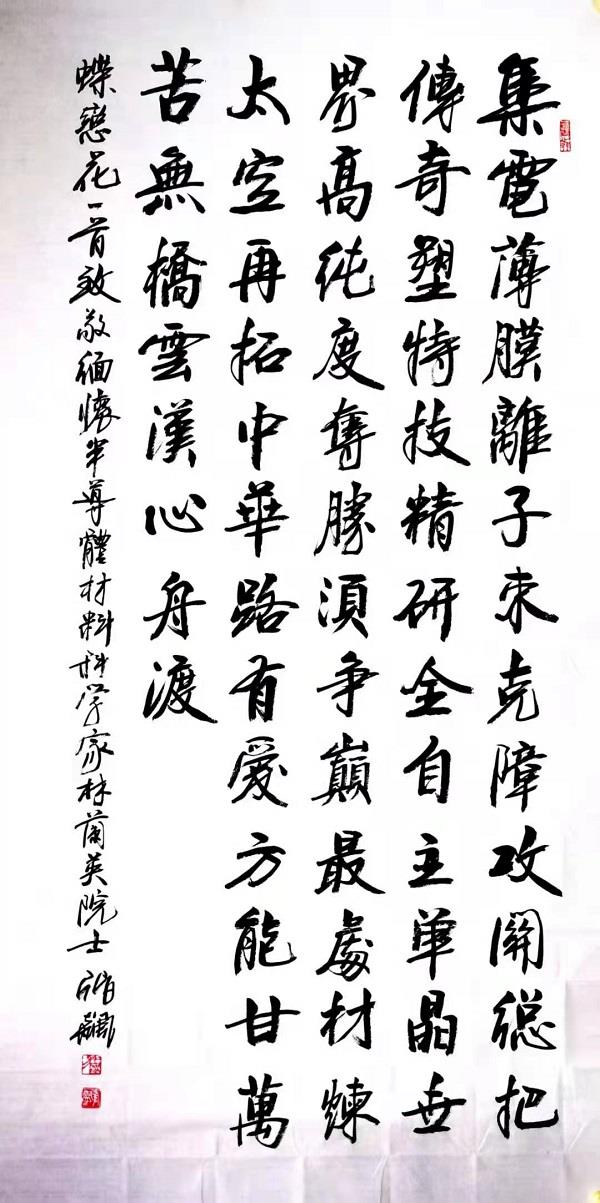 集電薄膜離子束克障攻關總把
傳奇塑特技精研全自主單晶世
界高純度奪勝須爭巔最處材煉
太空再拓中華路有愛方能甘萬
苦無橋雲漢心舟渡
蝶戀花一首致敬緬懷半導體材料科学家林蘭英院士